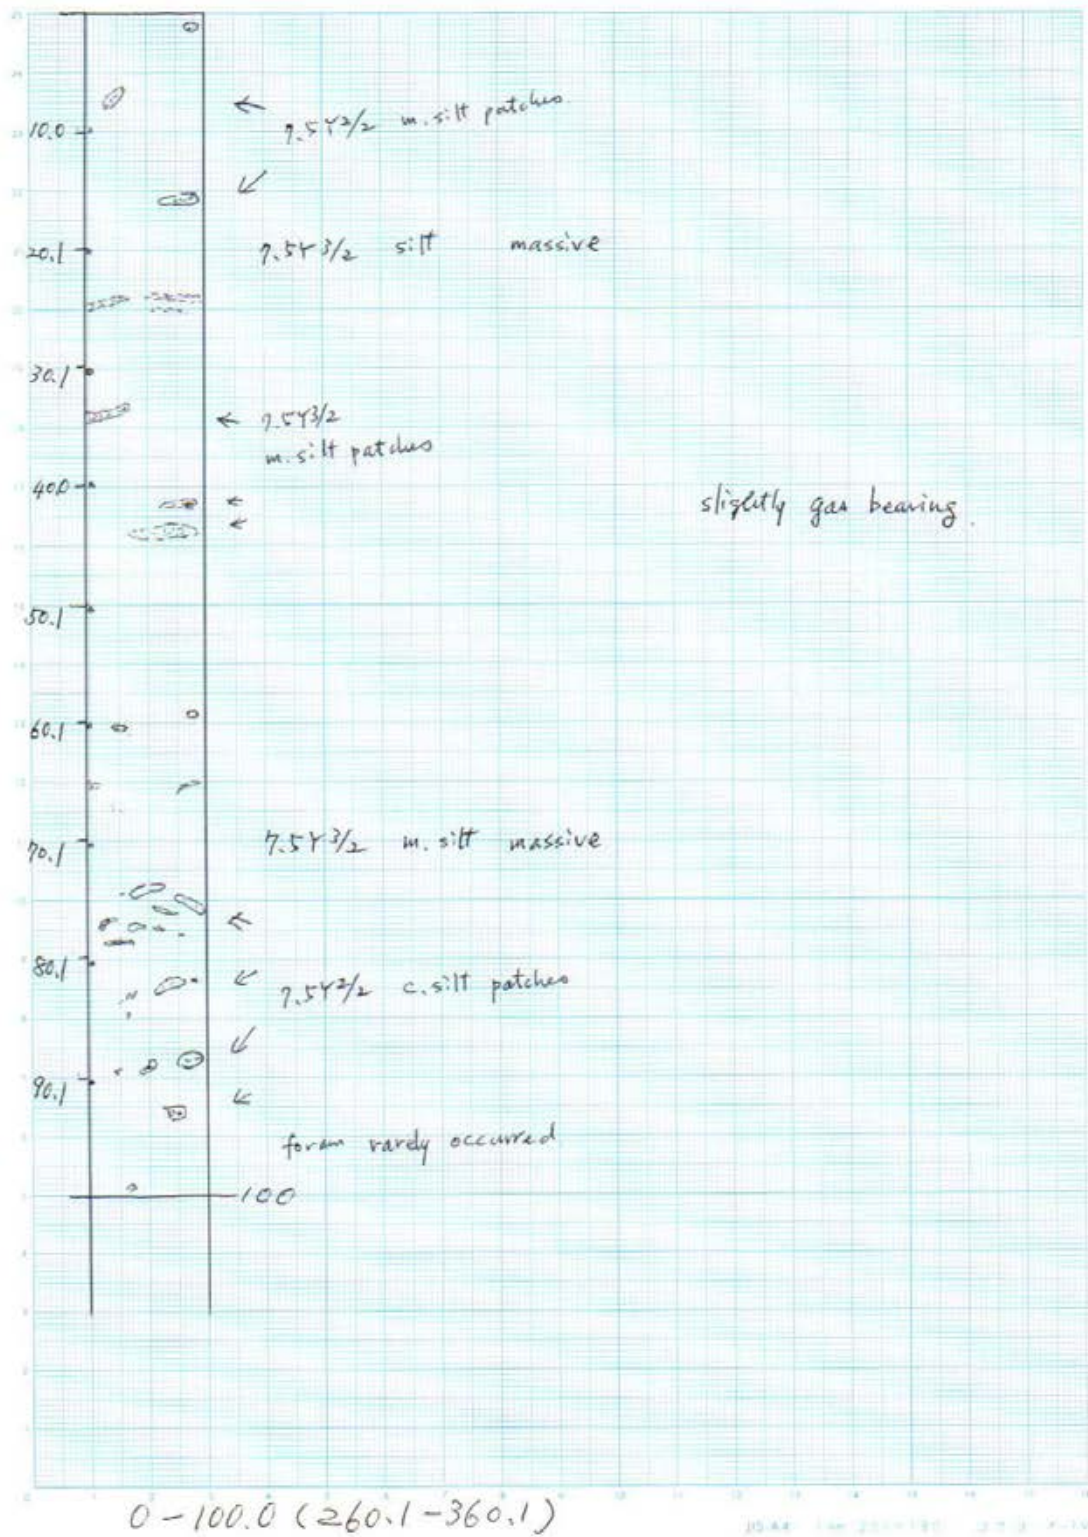 7.5Y2/2 m. silt patches
10.0
20.1 7.5Y3/2 silt massive
30.1
7.5Y3/2
m. silt patches
40.0
slightly gas bearing.
50.1
60.1
70.1 7.5Y3/2 m. silt massive
80.1
7.5Y2/2 c. silt patches
90.1
foram rarely occurred
100
0-100.0 (260.1-360.1)